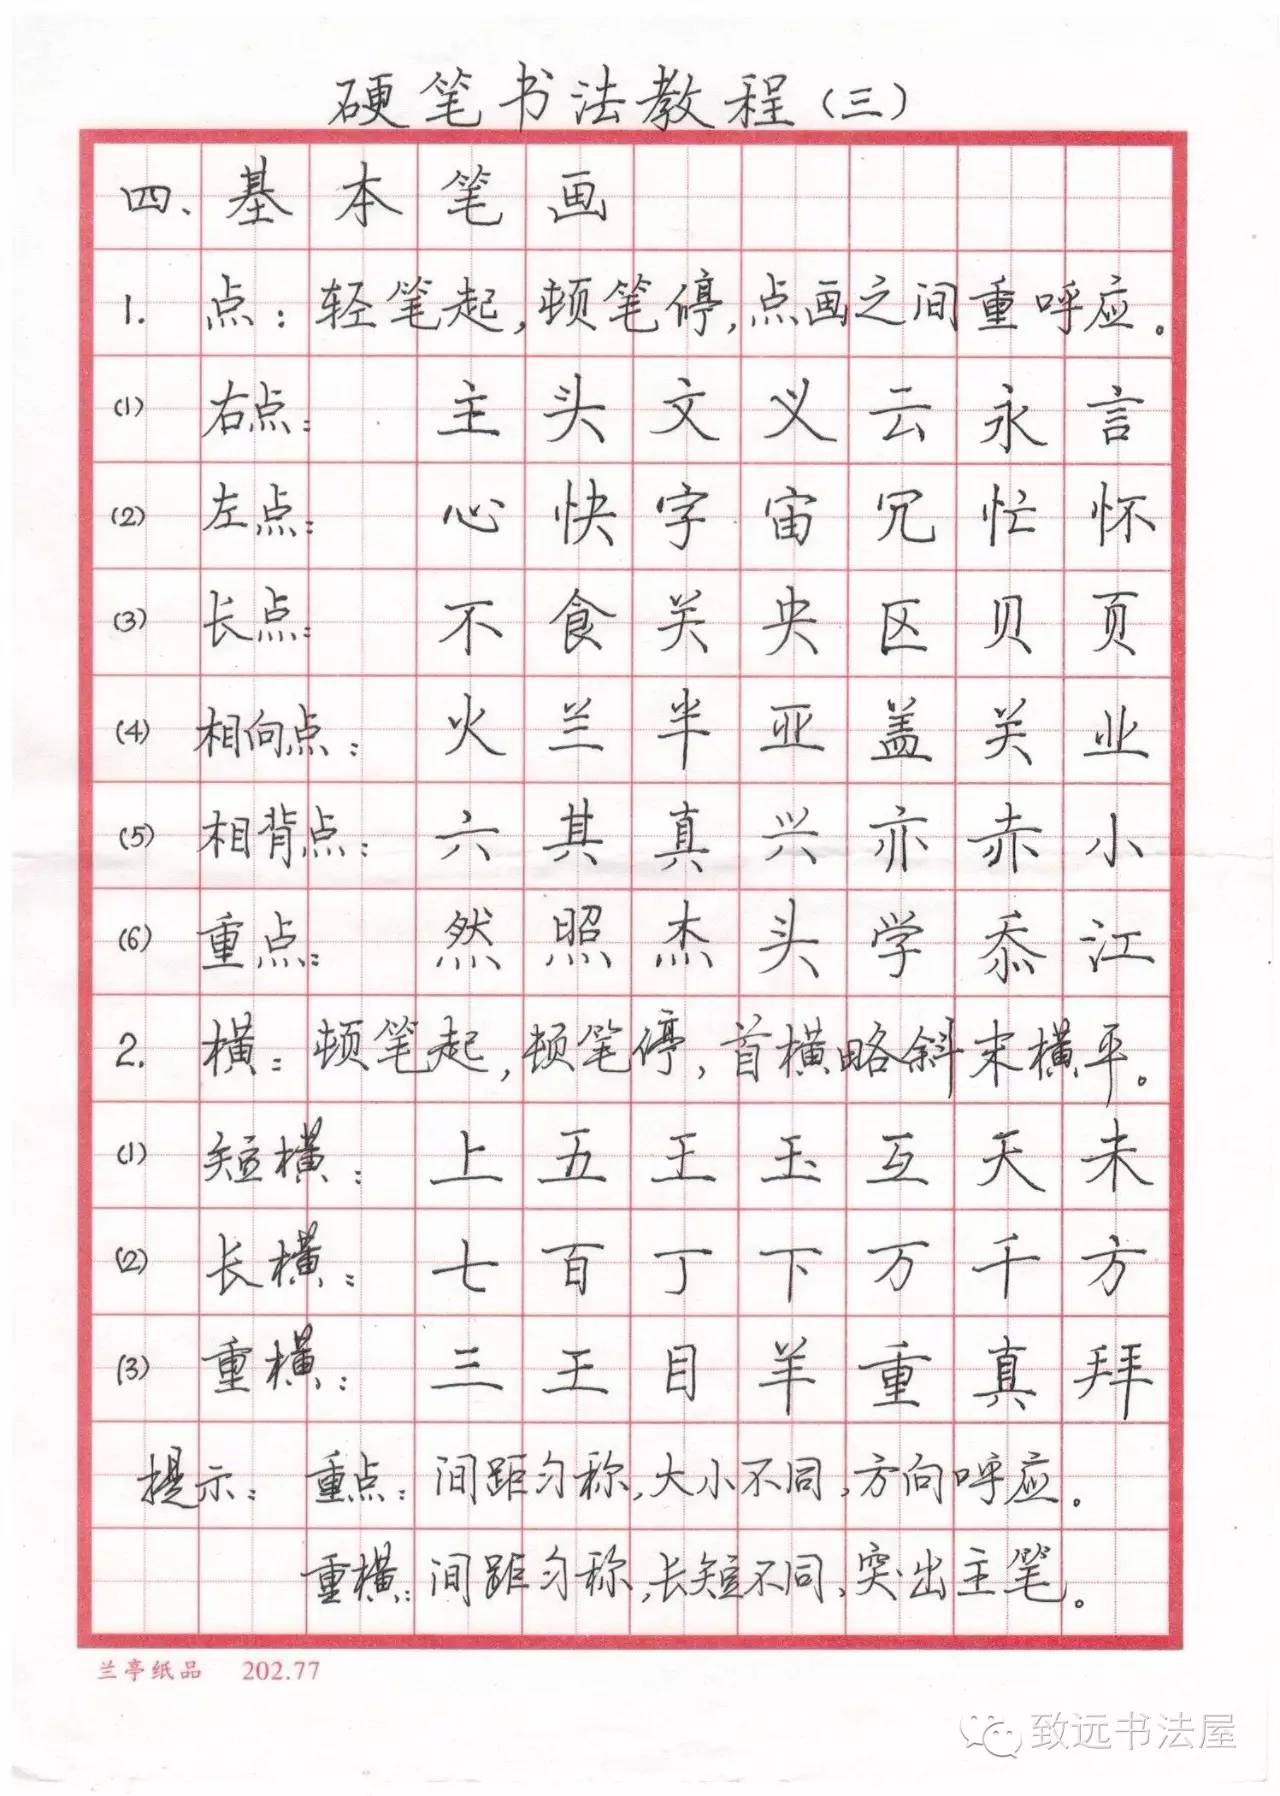 硬笔书法教程(三)
四、基本笔画
1. 点：轻笔起,顿笔停,点画之间重呼应。
(1) 右点： 主 头 文 义 云 永 言
(2) 左点： 心 快 字 宙 冗 忙 怀
(3) 长点： 不 食 关 央 区 贝 页
(4) 相向点： 火 兰 半 亚 盖 关 业
(5) 相背点： 六 其 真 兴 亦 赤 小
(6) 重点： 然 照 杰 头 学 忝 江
2. 横：顿笔起,顿笔停,首横略斜末横平。
(1) 短横： 上 五 王 玉 互 天 未
(2) 长横： 七 百 丁 下 万 千 方
(3) 重横： 三 王 目 羊 重 真 拜
提示：重点：间距匀称,大小不同,方向呼应。
重横：间距匀称,长短不同,突出主笔。
兰亭纸品 202.77
致远书法屋